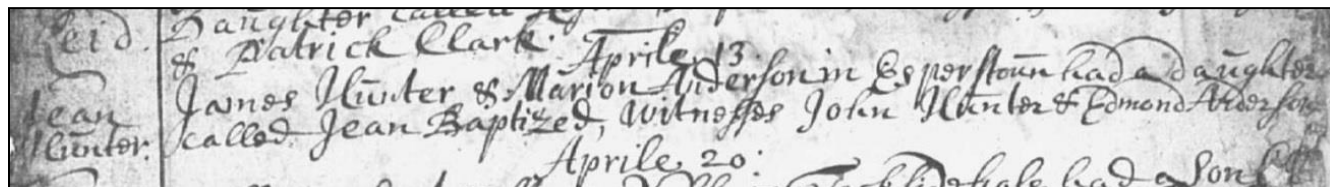 Reid. Daughter called
& Patrick Clark.
Aprile 13
Jean James Hunter & Marion Aiderson in Esperstoun had a daughter
Hunter. called Jean Baptized, witnesses John Hunter & Edmond Aiderson
Aprile 20
had a Son